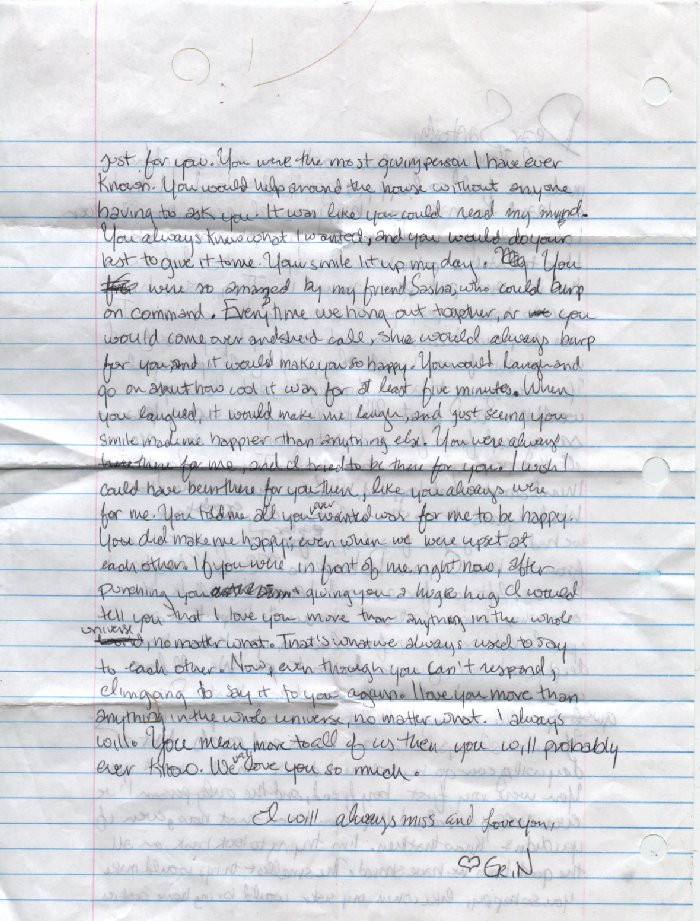 just for you. You were the most giving person I have ever
known. You would help around the house without anyone
having to ask you. It was like you could read my mind.
You always knew what I wanted, and you would do your
best to give it to me. Your smile lit up my day. You
were so amazed by my friend Sasha, who could burp
on command. Every time we hung out together, or you
would come over and she'd call, she would always burp
for you, and it would make you so happy. You would laugh and
go on about how cool it was for at least five minutes. When
you laughed, it would make me laugh, and just seeing you
smile made me happier than anything else. You were always
there for me, and I tried to be there for you. I wish I
could have been there for you then, like you always were
for me. You told me all you ever wanted was for me to be happy.
You did make me happy; even when we were upset at
each other. If you were in front of me right now, after
punching you giving you a huge hug I would
tell you that I love you more than anything in the whole
universe, no matter what. That's what we always used to say
to each other. Now, even though you can't respond,
I'm going to say it to you again. I love you more than
anything in the whole universe, no matter what. I always
will. You mean more to all of us then you will probably
ever know. We love you so much.
I will always miss and love you,
♡ ERiN